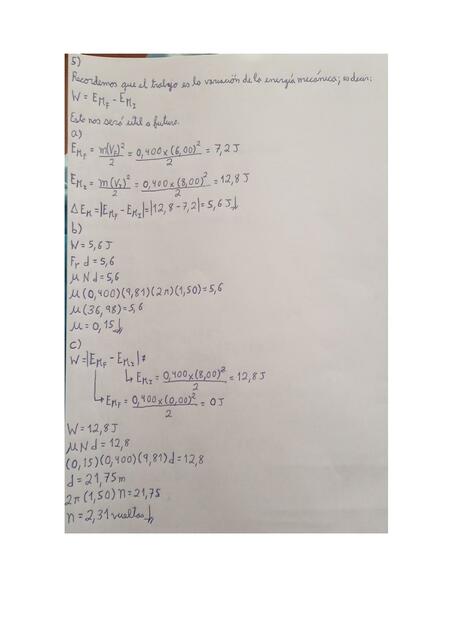 5)
Recordemos que el trabajo es la variación de la energía mecánica; es decir:
W = E_{M_F} - E_{M_I}
Esto nos será útil a futuro.
a)
E_{M_F} = m(V_F)²/2 = 0,400 x (6,00)²/2 = 7,2 J
E_{M_I} = m(V_I)²/2 = 0,400 x (8,00)²/2 = 12,8 J
Δ E_M = |E_{M_F} - E_{M_I}| = |12,8 - 7,2| = 5,6 J
b)
W = 5,6 J
F_r d = 5,6
μ N d = 5,6
μ (0,400)(9,81)(2π)(1,50) = 5,6
μ (36,98) = 5,6
μ = 0,15
c)
W = |E_{M_F} - E_{M_I}|
↳ E_{M_I} = 0,400 x (8,00)²/2 = 12,8 J
↳ E_{M_F} = 0,400 x (0,00)²/2 = 0 J
W = 12,8 J
μ N d = 12,8
(0,15)(0,400)(9,81) d = 12,8
d = 21,75 m
2π (1,50) n = 21,75
n = 2,31 vueltas